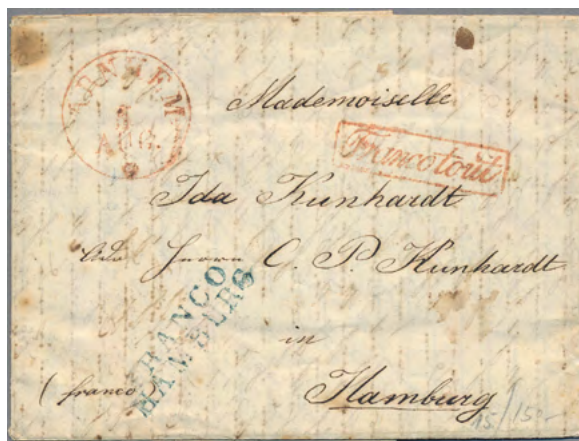 ARNHEM
5
AUG.
Mademoiselle
Franco tout
Ida Kunhardt
Herrn C. P. Kunhardt
FRANCO
HAMBURG
in
(franco)
Hamburg
15/150-